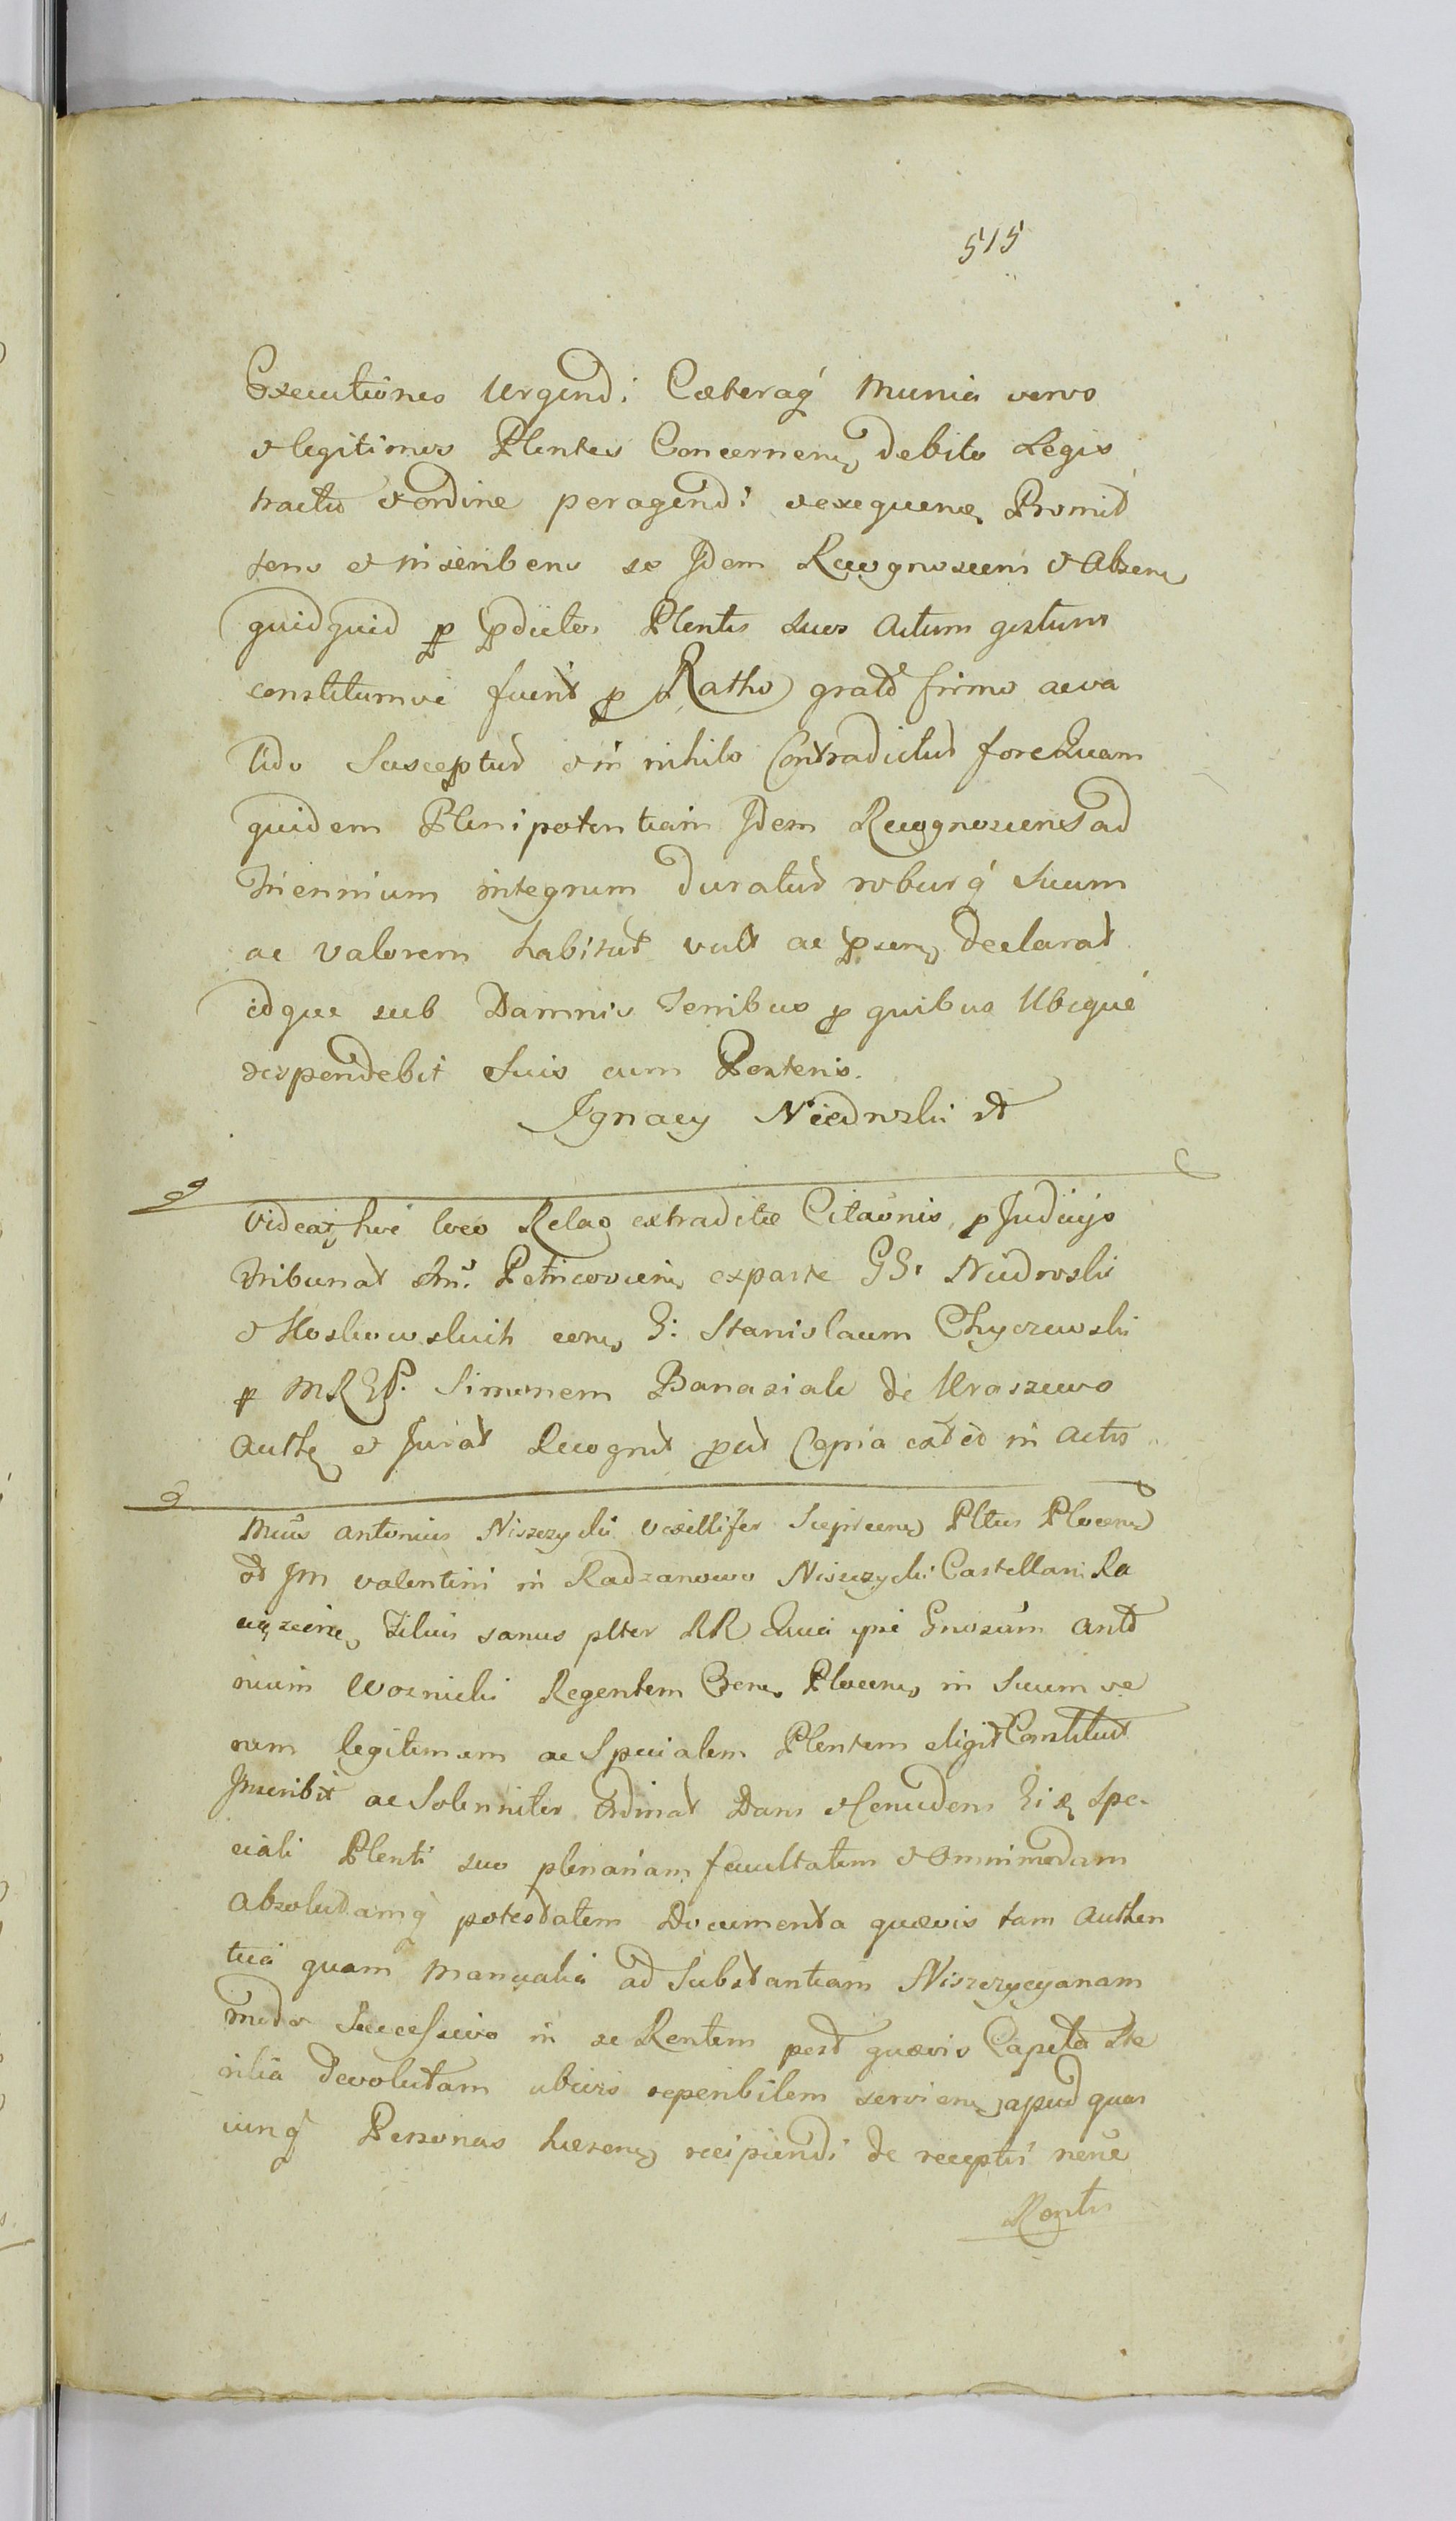 515
Executiones Urgendi Cæteraq́ Munia veros
et legitimos Plentes Concernen, debito Legis
tractu et ordine peragendi et exequen, Promit
tens et inscribens se Idem Recognoscens et Absen,
quidquid p pdictos Plentes suos Actum gestum
constitumve fuerit p Ratho grato firmo ac va
lido Suscepturũ et in nihilo Contradicturũ fore Quam
quidem Plenipotentiam Idem Recognoscens ad
Triennium integrum duraturũ roburq́ suum
ac valorem habiturũ vult ac psen, declarat
idque sub Damnis Terribus p quibus Ubique
respondebit Suis cum Posteris.
Ignacy Niedrwski
Videat, hoc loco Relao extraditæ Citaõnis, p Judicijs
Tribunat Petricovien, ex parte GG:
et con, G: Stanislaum Chyczewski
p MRGP. Simonem Banasiak de Kraszewo
Auth et Jurat Recognit put Copia est id in Actis
Mcus Antonius Niszczycki Vexillifer Pltus Plocen,
Im Valentini in Radzanowo Niszczycki Castellani Ra
ciązien, Filius sanus plter RR Quia ipse Gnosum Anto
nium Woznicki Regentem Plocen, in Suum ve
rum legitimum ac Specialem Plentem eligit Constituit
Inscribit ac Solenniter Ordinat Dans et Concedens Ei Spe-
ciali Plenti suo plenariam facultatem et omnimodam
Absolutamq́ potestatem Documenta quævis tam Authen
tica quam Manualia ad Substantiam Niszczycyanam
modo Successivo in se Rentem post quævis Capita Ste
rilia devolutam ubivis reperibilem servien, apud quas
cunq́ Personas hæren, recipiendi de receptis nõne
Rentis